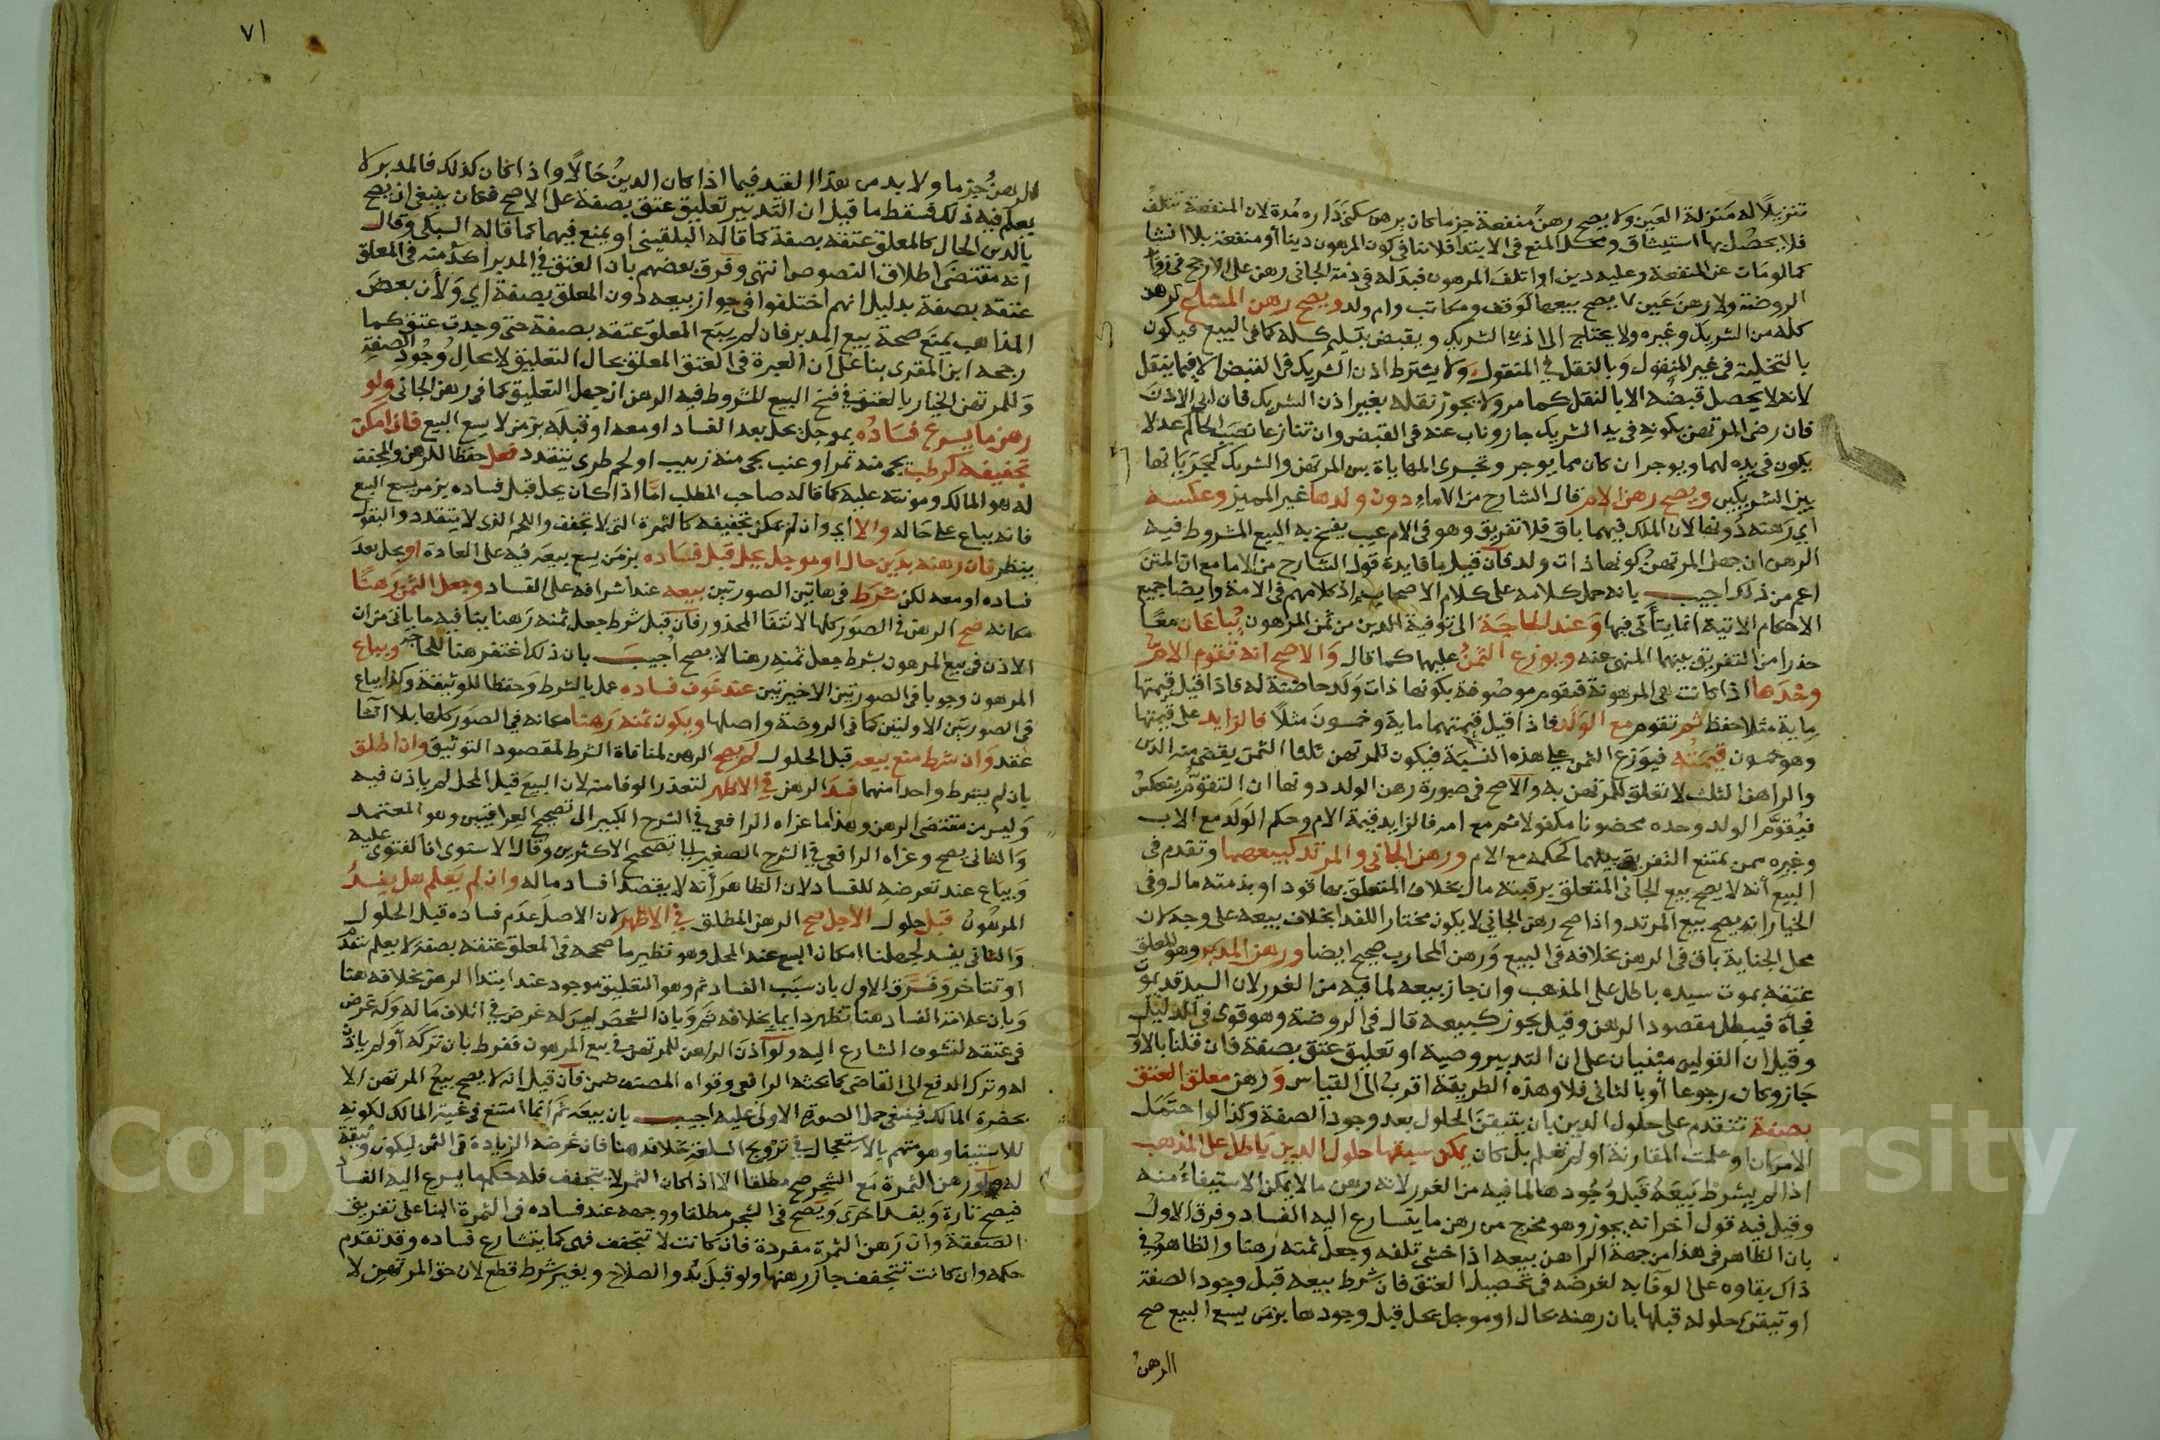 تنزيلا له منزلة العين ولا يصح رهن منفعة جزما كان يرهن سكنى داره مدة لان المنفعة تتلف
فلا يحصل بها استيثاق ومحل المنع في الابتدا فلا ينافي كون المرهون دينا او منفعة بلا انشا
كما لو مات عن المنفعة وعليه دين او اتلف المرهون فبدله في ذمة الجاني رهن على الارجح في زوائد
الروضة ولا رهن عين لا يصح بيعها كوقف ومكاتب وام ولد ويصح رهن المشاع كرهن
كله من الشريك وغيره ولا يحتاج الى اذن الشريك ويقبض بتسليم كله كما في البيع فيكون
بالتخلية في غير المنقول وبالنقل في المنقول ولا يشترط اذن الشريك في القبض الا فيما ينقل
لانه لا يحصل قبضه الا بالنقل كما مر ولا يجوز نقله بغير اذن الشريك فان ابى الاذن
فان رضي المرتهن بكونه في يد الشريك جاز وناب عنه في القبض وان تنازعا نصب الحاكم عدلا
يكون في يده لهما ويوجر ان كان مما يوجر وتجري المهاياة بين المرتهن والشريك كجريانها
بين الشريكين ويصح رهن الام قال الشارح من الاماء دون ولدها غير المميز وعكسه
اي رهنه دونها لان الملك فيهما باق فلا تفريق وهو في الام عيب يفسخ به البيع المشروط فيه
الرهن ان جهل المرتهن كونها ذات ولد فان قيل ما فايدة قول الشارح من الاما مع ان المتن
اعم من ذلك اجيب بانه حمل كلامه على كلام الاصحاب اذ كلامهم في الامة وايضا جميع
الاحكام الاتية انما يتأتى فيها وعند الحاجة الى توفية الدين من ثمن المرهون يباعان معا
حذرا من التفريق بينهما المنهي عنه ويوزع الثمن عليهما كما قال والاصح انه تقوم الام
وحدها اذا كانت هي المرهونة فتقوم موصوفة بكونها ذات ولد حاضنة له فاذا قيل قيمتها
ماية مثلا حفظ ثم تقوم مع الولد فاذا قيل قيمتهما ماية وخمسون مثلا فالزايد على قيمتها
وهو خمسون قيمته فيوزع الثمن على هذه النسبة فيكون للمرتهن ثلثا الثمن يقضي منه الدين
والراهن الثلث لا تعلق للمرتهن به والاصح في صورة رهن الولد دونها ان التقويم ينعكس
فيقوم الولد وحده محضونا مكفولا ثم مع امه فالزايد قيمة الام وحكم الولد مع الاب
وغيره ممن يمتنع التفريق بينهما كحكمه مع الام ورهن الجاني والمرتد كبيعهما وتقدم في
البيع انه لا يصح بيع الجاني المتعلق برقبته مال بخلاف المتعلق بها قود او بذمته مال وفي
الخيار انه يصح بيع المرتد واذا صح رهن الجاني لا يكون مختارا للفدا بخلاف بيعه على وجه لان
محل الجناية باق في الرهن بخلافه في البيع ورهن المحارب صحيح ايضا ورهن المدبر وهو المعلق
عتقه بموت سيده باطل على المذهب وان جاز بيعه لما فيه من الغرر لان السيد قد يموت
فجأة فيبطل مقصود الرهن وقيل يجوز كبيعه قال في الروضة وهو قوي في الدليل
وقيل ان القولين مبنيان على ان التدبير وصية او تعليق عتق بصفة فان قلنا بالاول
جاز وكان رجوعا او بالثاني فلا وهذه الطريقة اقرب الى القياس ورهن معلق العتق
بصفة تتقدم على حلول الدين بان يتيقن الحلول بعد وجود الصفة وكذا لو احتمل
الامران او علمت المقارنة او لم تعلم بل كان يمكن سبقها حلول الدين باطل على المذهب
اذا لم يشرط بيعه قبل وجودها لما فيه من الغرر لانه رهن ما لا يمكن الاستيفاء منه
وقيل فيه قول اخر انه يجوز وهو مخرج من رهن ما يتسارع اليه الفساد وفرق الاول
بان الظاهر في هذا من جهة الراهن بيعه اذا خشي تلفه وجعل ثمنه رهنا والظاهر في
ذاك بقاوه على الوفا به لغرضه في تحصيل العتق فان شرط بيعه قبل وجود الصفة
او تيقن حلوله قبلها بان رهنه بحال او موجل يحل قبل وجودها بزمن يسع البيع صح
الرهن
٧١
الرهن جزما ولا بد من هذا القيد فيما اذا كان الدين حالا واذا كان كذلك فالمدبر لا
يعلم فيه ذلك فسقط ما قيل ان التدبير تعليق عتق بصفة على الاصح فكان ينبغي ان يصح
بالدين الحال كالمعلق عتقه بصفة كما قاله البلقيني او يمنع فيهما كما قاله السبكي وقال
انه مقتضى اطلاق النصوص انتهى وفرق بعضهم بان العتق في المدبر اكد منه في المعلق
عتقه بصفة بدليل انهم اختلفوا في جواز بيعه دون المعلق بصفة اي ولان بعض
المذاهب يمنع صحة بيع المدبر فان لم يبع المعلق عتقه بصفة حتى وجدت عتق كما
رجحه ابن المقري بنا على ان العبرة في العتق المعلق بحال التعليق لا بحال وجود الصفة
وللمرتهن الخيار بالعتق في فسخ البيع المشروط فيه الرهن ان جهل التعليق كما في رهن الجاني ولو
رهن ما يسرع فساده بموجل يحل بعد الفساد او معه او قبله بزمن لا يسع البيع فان امكن
تجفيفه كرطب يجي منه تمر او عنب يجي منه زبيب او لحم طري يتقدد فعل حفظا للرهن والمجفف
له هو المالك ومونته عليه كما قاله صاحب المطلب اما اذا كان يحل قبل فساده بزمن يسع البيع
فانه يباع على حاله والا اي وان لم يمكن تجفيفه كالثمرة التي لا تجفف واللحم الذي لا يتقدد والبقول
ينظر فان رهنه بدين حال او موجل يحل قبل فساده بزمن يسع بيعه فيه على العادة او يحل بعد
فساده او معه لكن شرط في هاتين الصورتين بيعه عند اشرافه على الفساد وجعل الثمن رهنا
مكانه صح الرهن في الصور كلها لانتفا المحذور فان قيل شرط جعل ثمنه رهنا ينافيه ما ياتي من ان
الاذن في بيع المرهون بشرط جعل ثمنه رهنا لا يصح اجيب بان ذلك اغتفر هنا للحاجة ويباع
المرهون وجوبا في الصورتين الاخيرتين عند خوف فساده عملا بالشرط وحفظا للوثيقة وكذا يباع
في الصورتين الاولتين كما في الروضة واصلها ويكون ثمنه رهنا مكانه في الصور كلها بلا انشا
عقد وان شرط منع بيعه قبل الحلول لم يصح الرهن لمنافاة الشرط لمقصود التوثيق وان اطلق
بان لم يشرط واحدا منهما فسد الرهن في الاظهر لتعذر الوفا منه لان البيع قبل المحل لم ياذن فيه
وليس من مقتضى الرهن وهذا ما عزاه الرافعي في الشرح الكبير الى تصحيح العراقيين وهو المعتمد
والثاني يصح وعزاه الرافعي في الشرح الصغير الى تصحيح الاكثرين وقال الاسنوي ان الفتوى عليه
ويباع عند تعرضه للفساد لان الظاهر انه لا يقصد افساد ماله وان لم يعلم هل يفسد
المرهون قبل حلول الاجل صح الرهن المطلق في الاظهر لان الاصل عدم فساده قبل الحلول
والثاني يفسد لجهلنا امكان البيع عند المحل وهو نظير ما صححه في المعلق عتقه بصفة لا يعلم تتقدم
او تتاخر وفرق الاول بان سبب الفساد ثم وهو التعليق موجود عند ابتدا الرهن بخلافه هنا
وبان علامة الفساد هنا تظهر دايما بخلافه ثم وبان الشخص ليس له غرض في اتلاف ماله وله غرض
في عتقه لتشوف الشارع اليه ولو اذن الراهن للمرتهن في بيع المرهون ففرط بان تركه او لم ياذن
له وترك الرفع الى القاضي كما بحثه الرافعي وقواه المصنف ضمن فان قيل انه لا يصح بيع المرتهن الا
بحضرة المالك فينبغي حمل الصورة الاولى عليه اجيب بان بيعه ثم انما امتنع في غيبة المالك لكونه
للاستيفا وهو متهم بالاستعجال في ترويج السلعة بخلافه هنا فان غرضه الزيادة في الثمن ليكون وثيقة
له ولو رهن الثمرة مع الشجر صح مطلقا الا اذا كان الثمر لا يتجفف فله حكم ما يسرع اليه الفساد
فيصح تارة ويفسد اخرى ويصح في الشجر مطلقا ووجهه عند فساده في الثمرة البنا على تفريق
الصفقة وان رهن الثمرة مفردة فان كانت لا تتجفف فهي كما يتسارع فساده وقد تقدم
حكمه وان كانت تتجفف جاز رهنها ولو قبل بدو الصلاح وبغير شرط قطع لان حق المرتهن لا